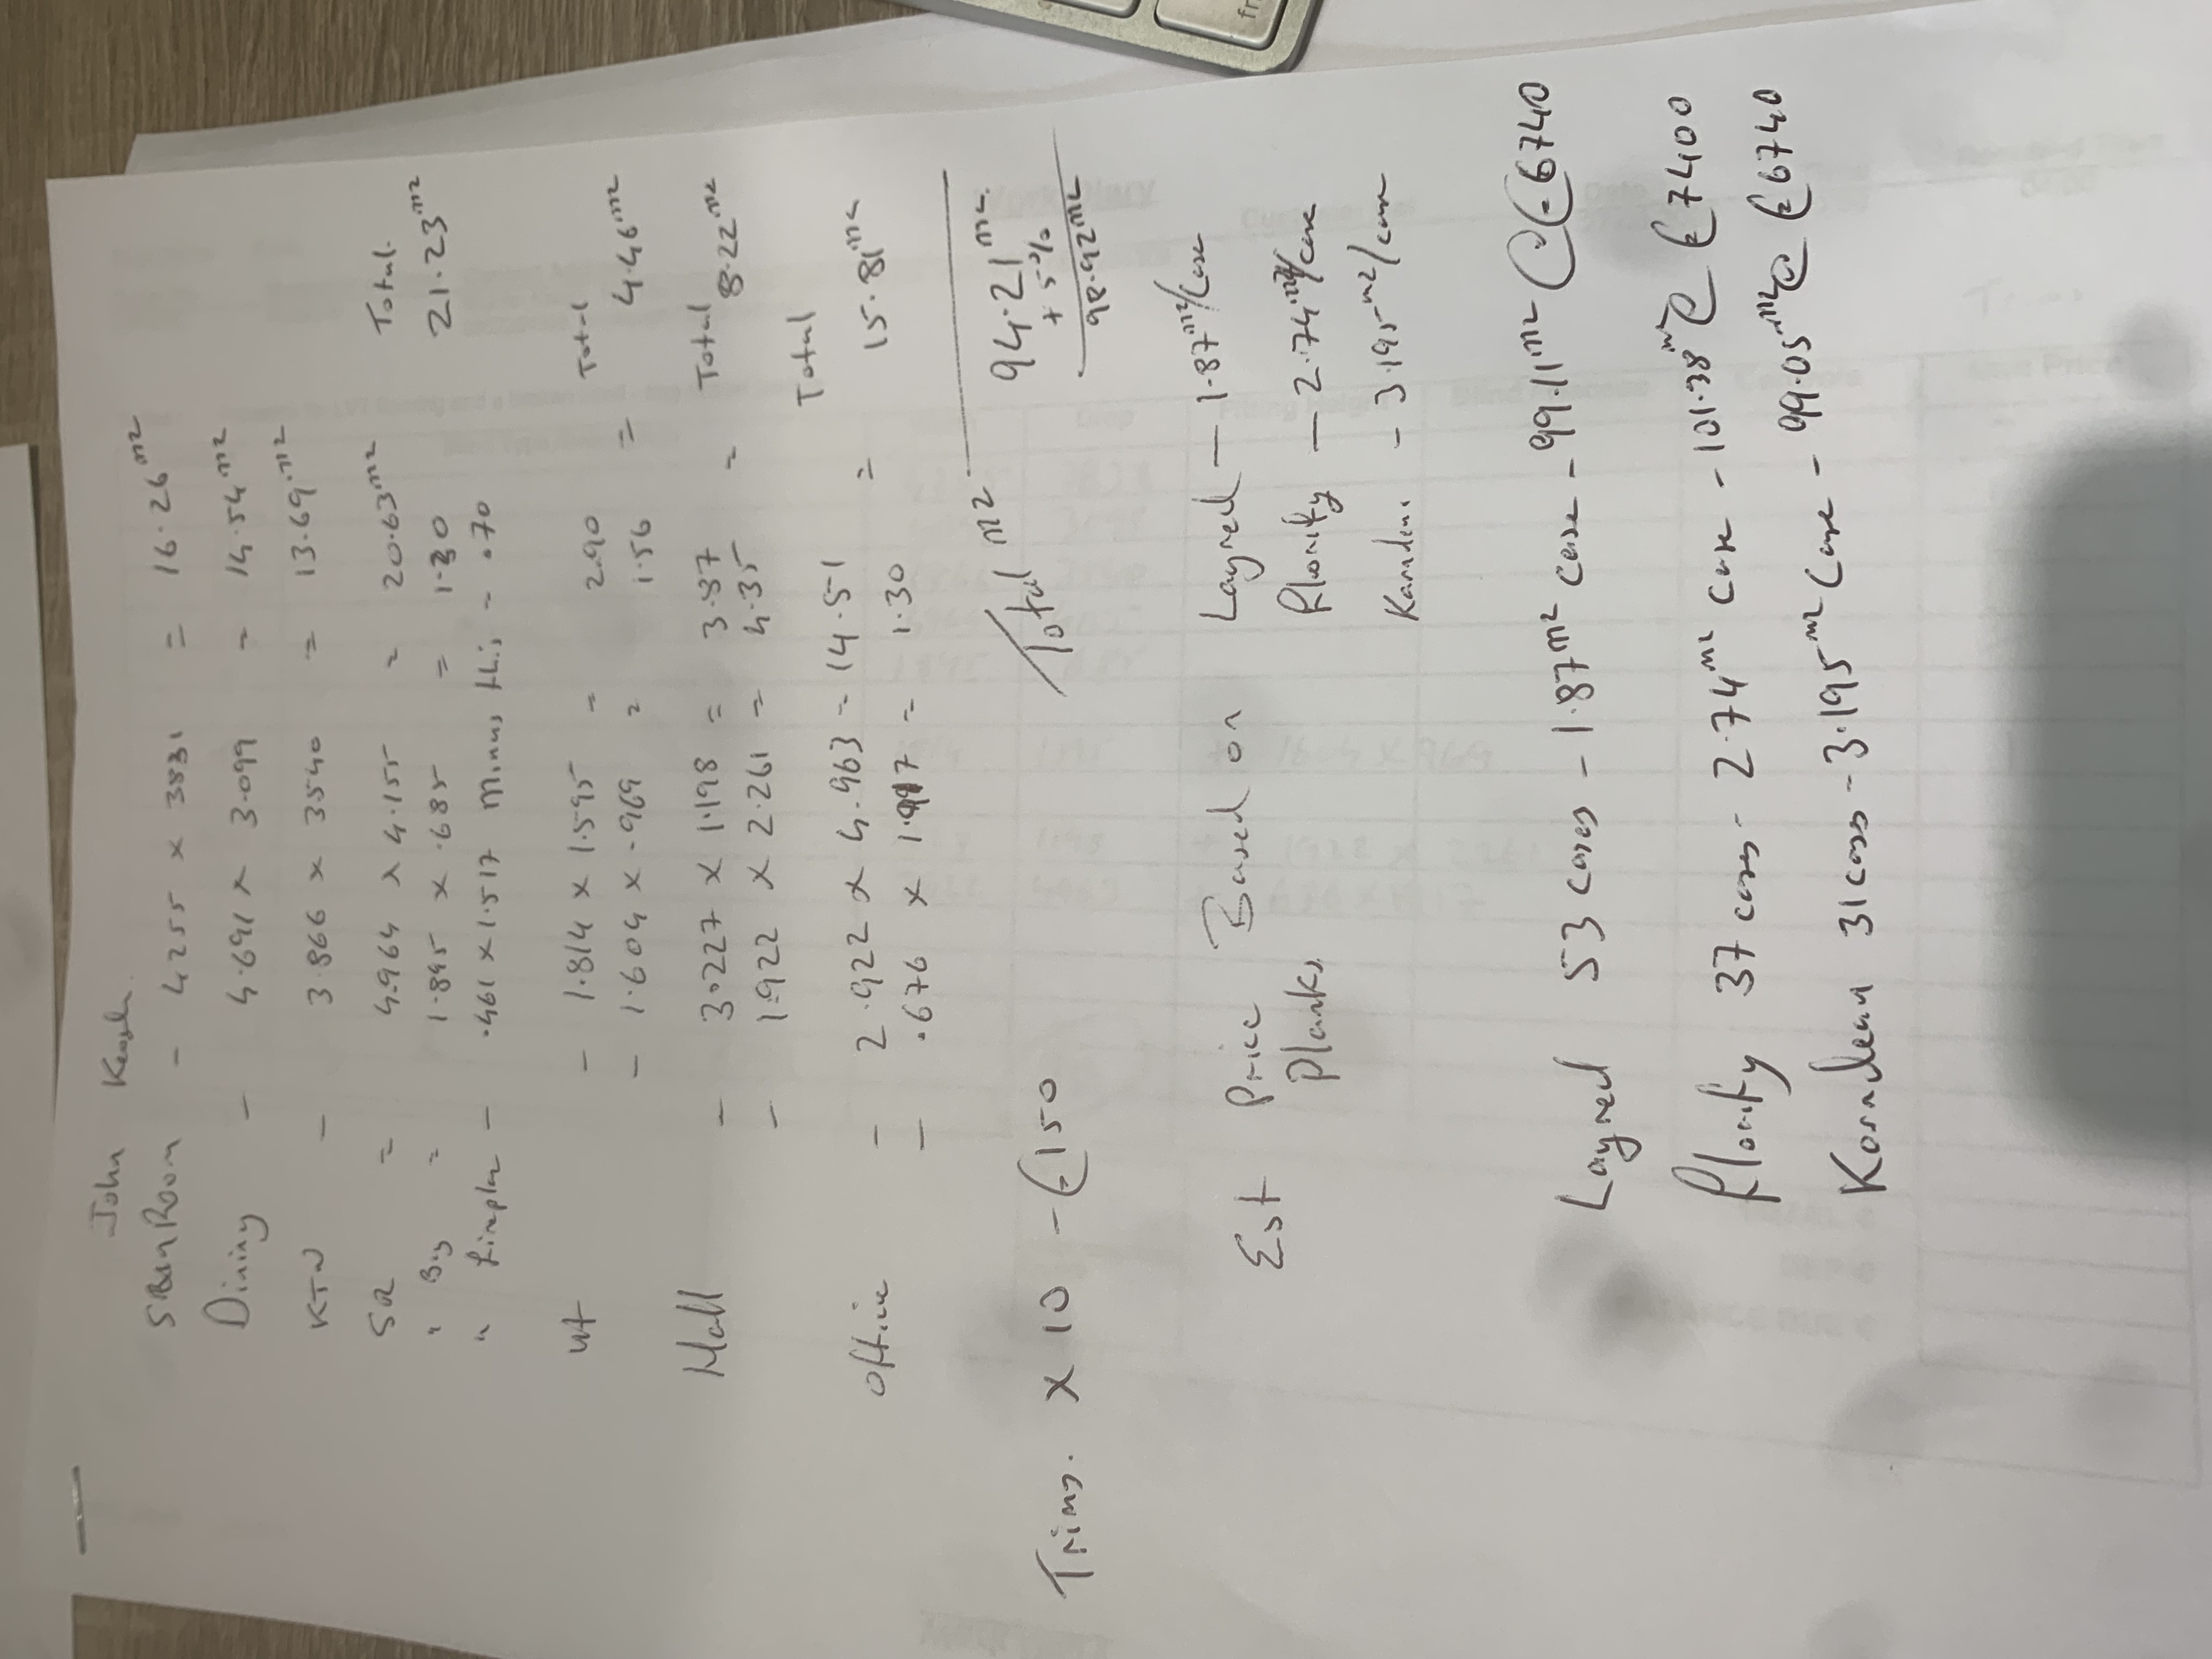 John
SUN Room - 4255 x 3831 = 16.26 m2
Dining - 4.691 x 3.099 = 14.54 m2
KTN - 3.866 x 3540 = 13.69 m2
SR = 4.964 x 4.155 = 20.63 m2 Total
" Bay = 1.895 x .685 = 1.30 21.23 m2
" fireplace - .461 x 1.517 minus this - .70
Ut - 1.814 x 1.595 = 2.90 Total
- 1.604 x .969 = 1.56 = 4.46 m2
Hall - 3.227 x 1.198 = 3.87 Total
- 1.922 x 2.261 = 4.35 = 8.22 m2
Total
Office - 2.922 x 4.963 = 14.51
- .676 x 1.917 = 1.30 = 15.81 m2
Total m2 94.21 m2
+ 5%
98.92 m2
Trims. x 10 - £150
Est Price Based on Layred - 1.87 m2/case
Planks. Floorify - 2.74 m2/case
Karndean - 3.195 m2/case
Layred 53 cases - 1.87 m2 case - 99.11 m2 @ £6740
Floorify 37 cases - 2.74 m2 case - 101.38 m2 @ £7400
Karndean 31 cases - 3.195 m2 case - 99.05 m2 @ £6740